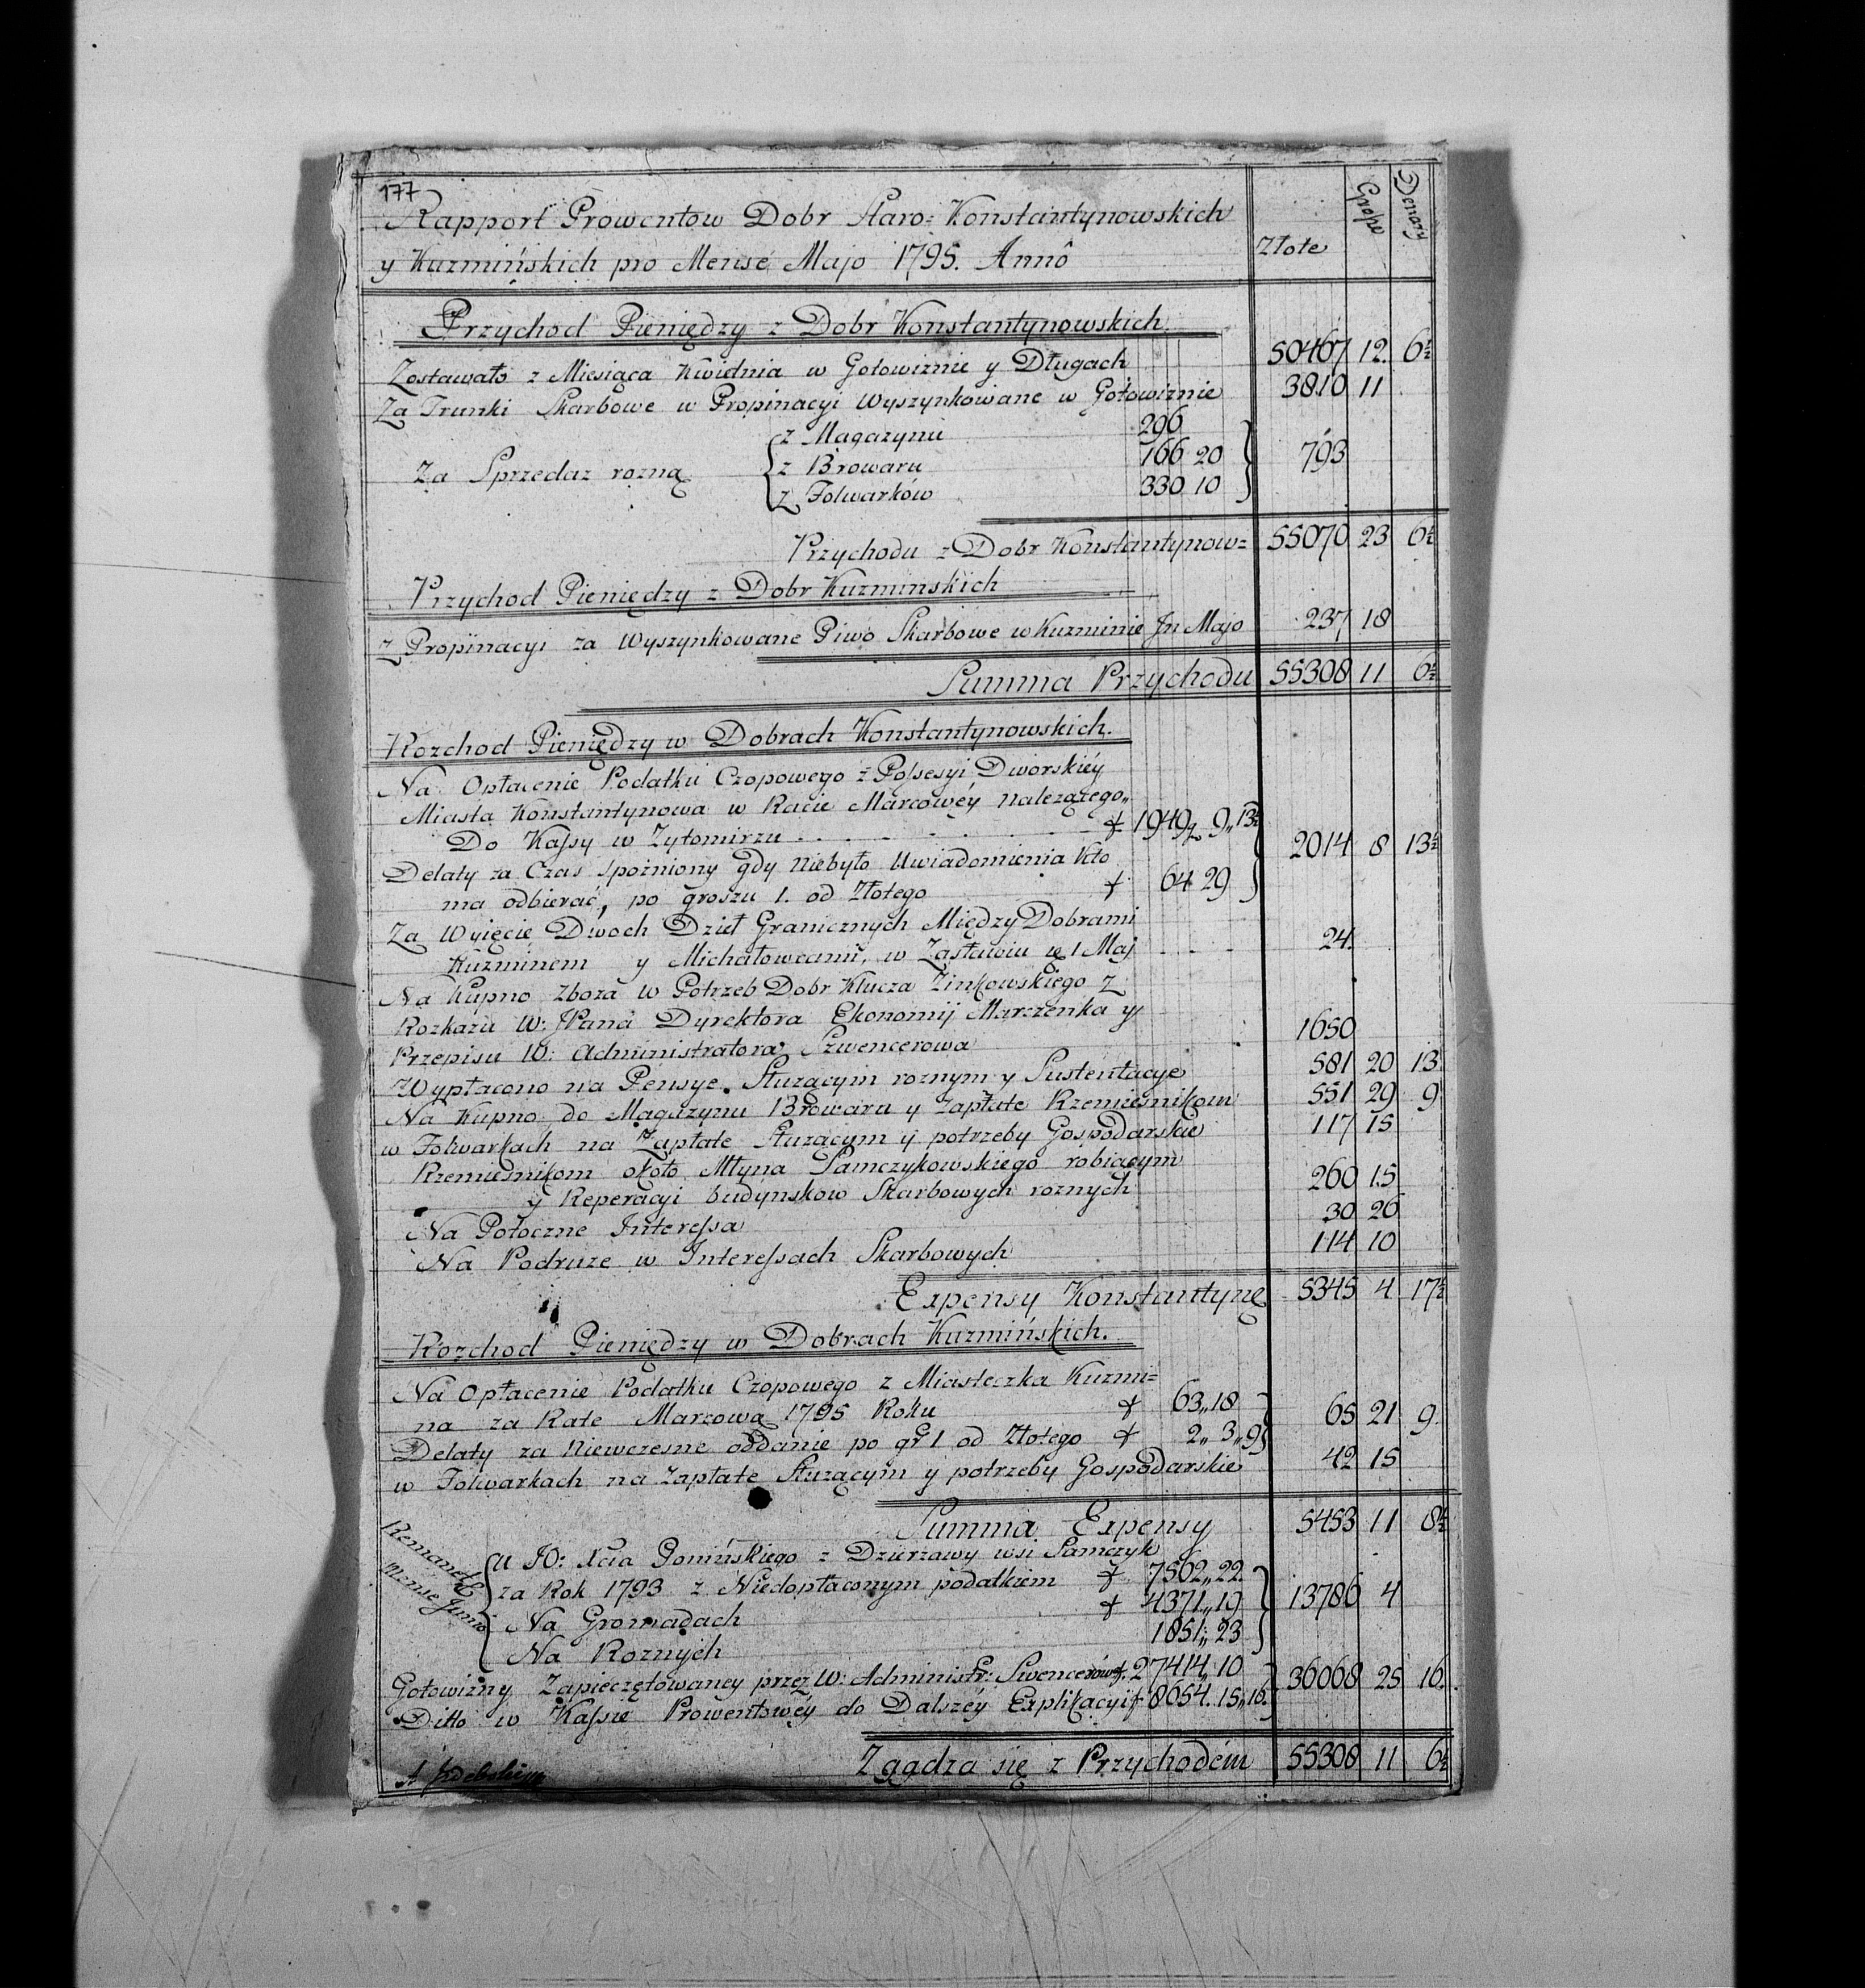 177
Rapport Prowentow Dobr Staro=Konstantynowskich
y Kuzmińskich pro Mense Majo 1795. Annô
Złote Grosze Denary
Przychod Pieniędzy z Dobr Konstantynowskich
Zostawało z Miesiąca Kwietnia w Gotowiznie y Długach 50467 12. 6½
Za Trunki Skarbowe w Propinacyi Wyszynkowane w Gotowiznie 3810 11
z Magazynu 296
Za Sprzedaz rozną z Browaru 166 20 793
z Folwarków 330 10
Przychodu z Dobr Konstantynow= 55070 23 6½
Przychod Pieniędzy z Dobr Kuzminskich
z Propinacyi za Wyszynkowane Piwo Skarbowe w Kuzminie In Majo 237 18
Summa Przychodu 55308 11 6½
Rozchod Pieniędzy w Dobrach Konstantynowskich.
Na Opłacenie Podatku Czopowego z Possesyi Dworskiéy
Miasta Konstantynowa w Racie Marcowéy nalezącego„
Do Kassy w Zytomirzu 1949„ 9„ 13½
2014 8 13½
Delaty za Czas spozniony gdy niebyło Uwiadomienia Kto
ma odbierać, po groszu 1. od Złotego 64 29
Za Wyięcie Dwoch Dzieł Granicznych Między Dobrami
Kuzminem y Michałowcami, w Zasławiu 1 Maj 24.
Na Kupno Zboza w Potrzeb Dobr Klucza Zinkowskiego z
Rozkazu W: JPana Dyrektora Ekonomij Marczenka y
Przepisu W: Administratora Szwencerowa 1650
Wypłacono na Pensye Słuzącym roznym y Sustentacye 581 20 13
Na Kupno do Magazynu Browaru y zapłate Rzemieśnikom 551 29 9
w Folwarkach na Zapłate Słuzącym y potrzeby Gospodarskie 117 15
Rzemieśnikom około Młyna Samczykowskiego robiącym
y Reperacyi budynskow Skarbowych roznych 260 15
Na Potoczne Interessa 30 26
Na Podruze w Interessach Skarbowych 114 10
Expensy Konstantynę 5345 4 17½
Rozchod Pieniędzy w Dobrach Kuzmińskich.
Na Opłacenie Podatku Czopowego z Miasteczka Kuzmi=
na za Rate Marcową 1795 Roku 63„18
65 21 9.
Delaty za niewczesne oddanie po gr 1 od Złotego 2„ 3„9
w Folwarkach na Zapłate Słuzącym y potrzeby Gospodarskie 42 15
Summa Expensy 5453 11 8½
Remanet
Mense Junio
U JO: Xcia Ponińskiego z Dzierzawy wsi Samczyk
za Rok 1793 z Niedopłaconym podatkiem 7562„22.
Na Gromadach 4371„19 13786 4
Na Roznych 1851„23
Gotowizny Zapieczętowaney przez W: Administr: Swencerow 27414„10
36068 25 16.
Ditto w Kassie Prowentowéy do Dalszéy Explikacyi 8654. 15„16.
Zgadza się z Przychodém 55308 11 6½